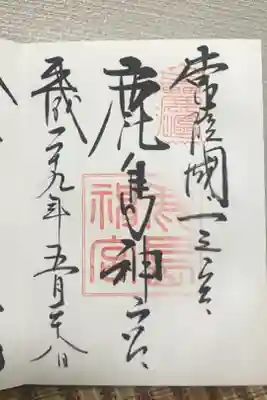 常陸國一之宮
鹿島神宮
鹿島神宮
平成二十九年五月二十八日